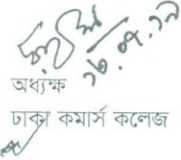 ১৮.০৭.১৭
অধ্যক্ষ
ঢাকা কমার্স কলেজ